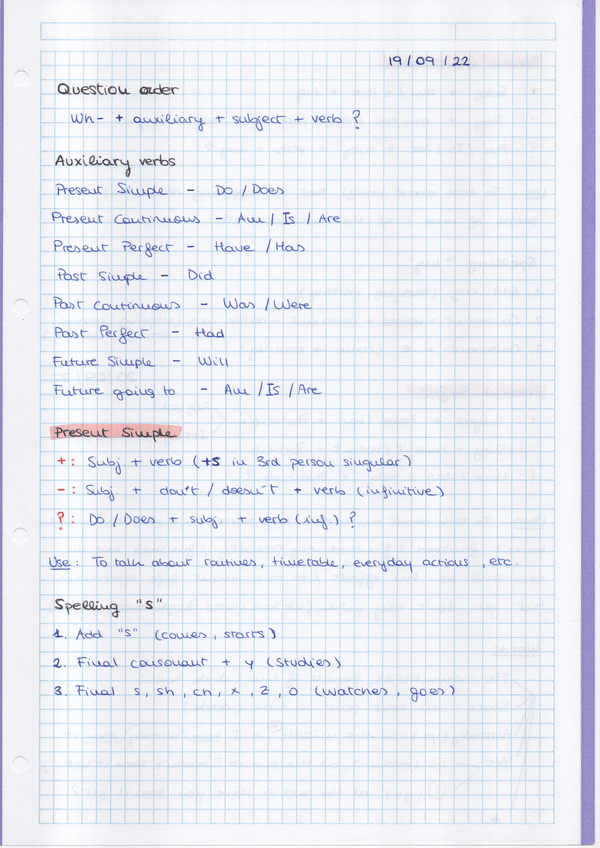 19/09/22
Question order
Wh- + auxiliary + subject + verb ?
Auxiliary verbs
Present Simple - Do / Does
Present Continuous - Am / Is / Are
Present Perfect - Have / Has
Past Simple - Did
Past Continuous - Was / Were
Past Perfect - Had
Future Simple - Will
Future going to - Am / Is / Are
Present Simple
+ : Subj + verb (+s in 3rd person singular)
- : Subj + don't / doesn't + verb (infinitive)
? : Do / Does + subj. + verb (inf.) ?
Use : To talk about routines, timetable, everyday actions, etc.
Spelling "s"
1. Add "s" (comes, starts)
2. Final consonant + y (studies)
3. Final s, sh, ch, x, z, o (watches, goes)